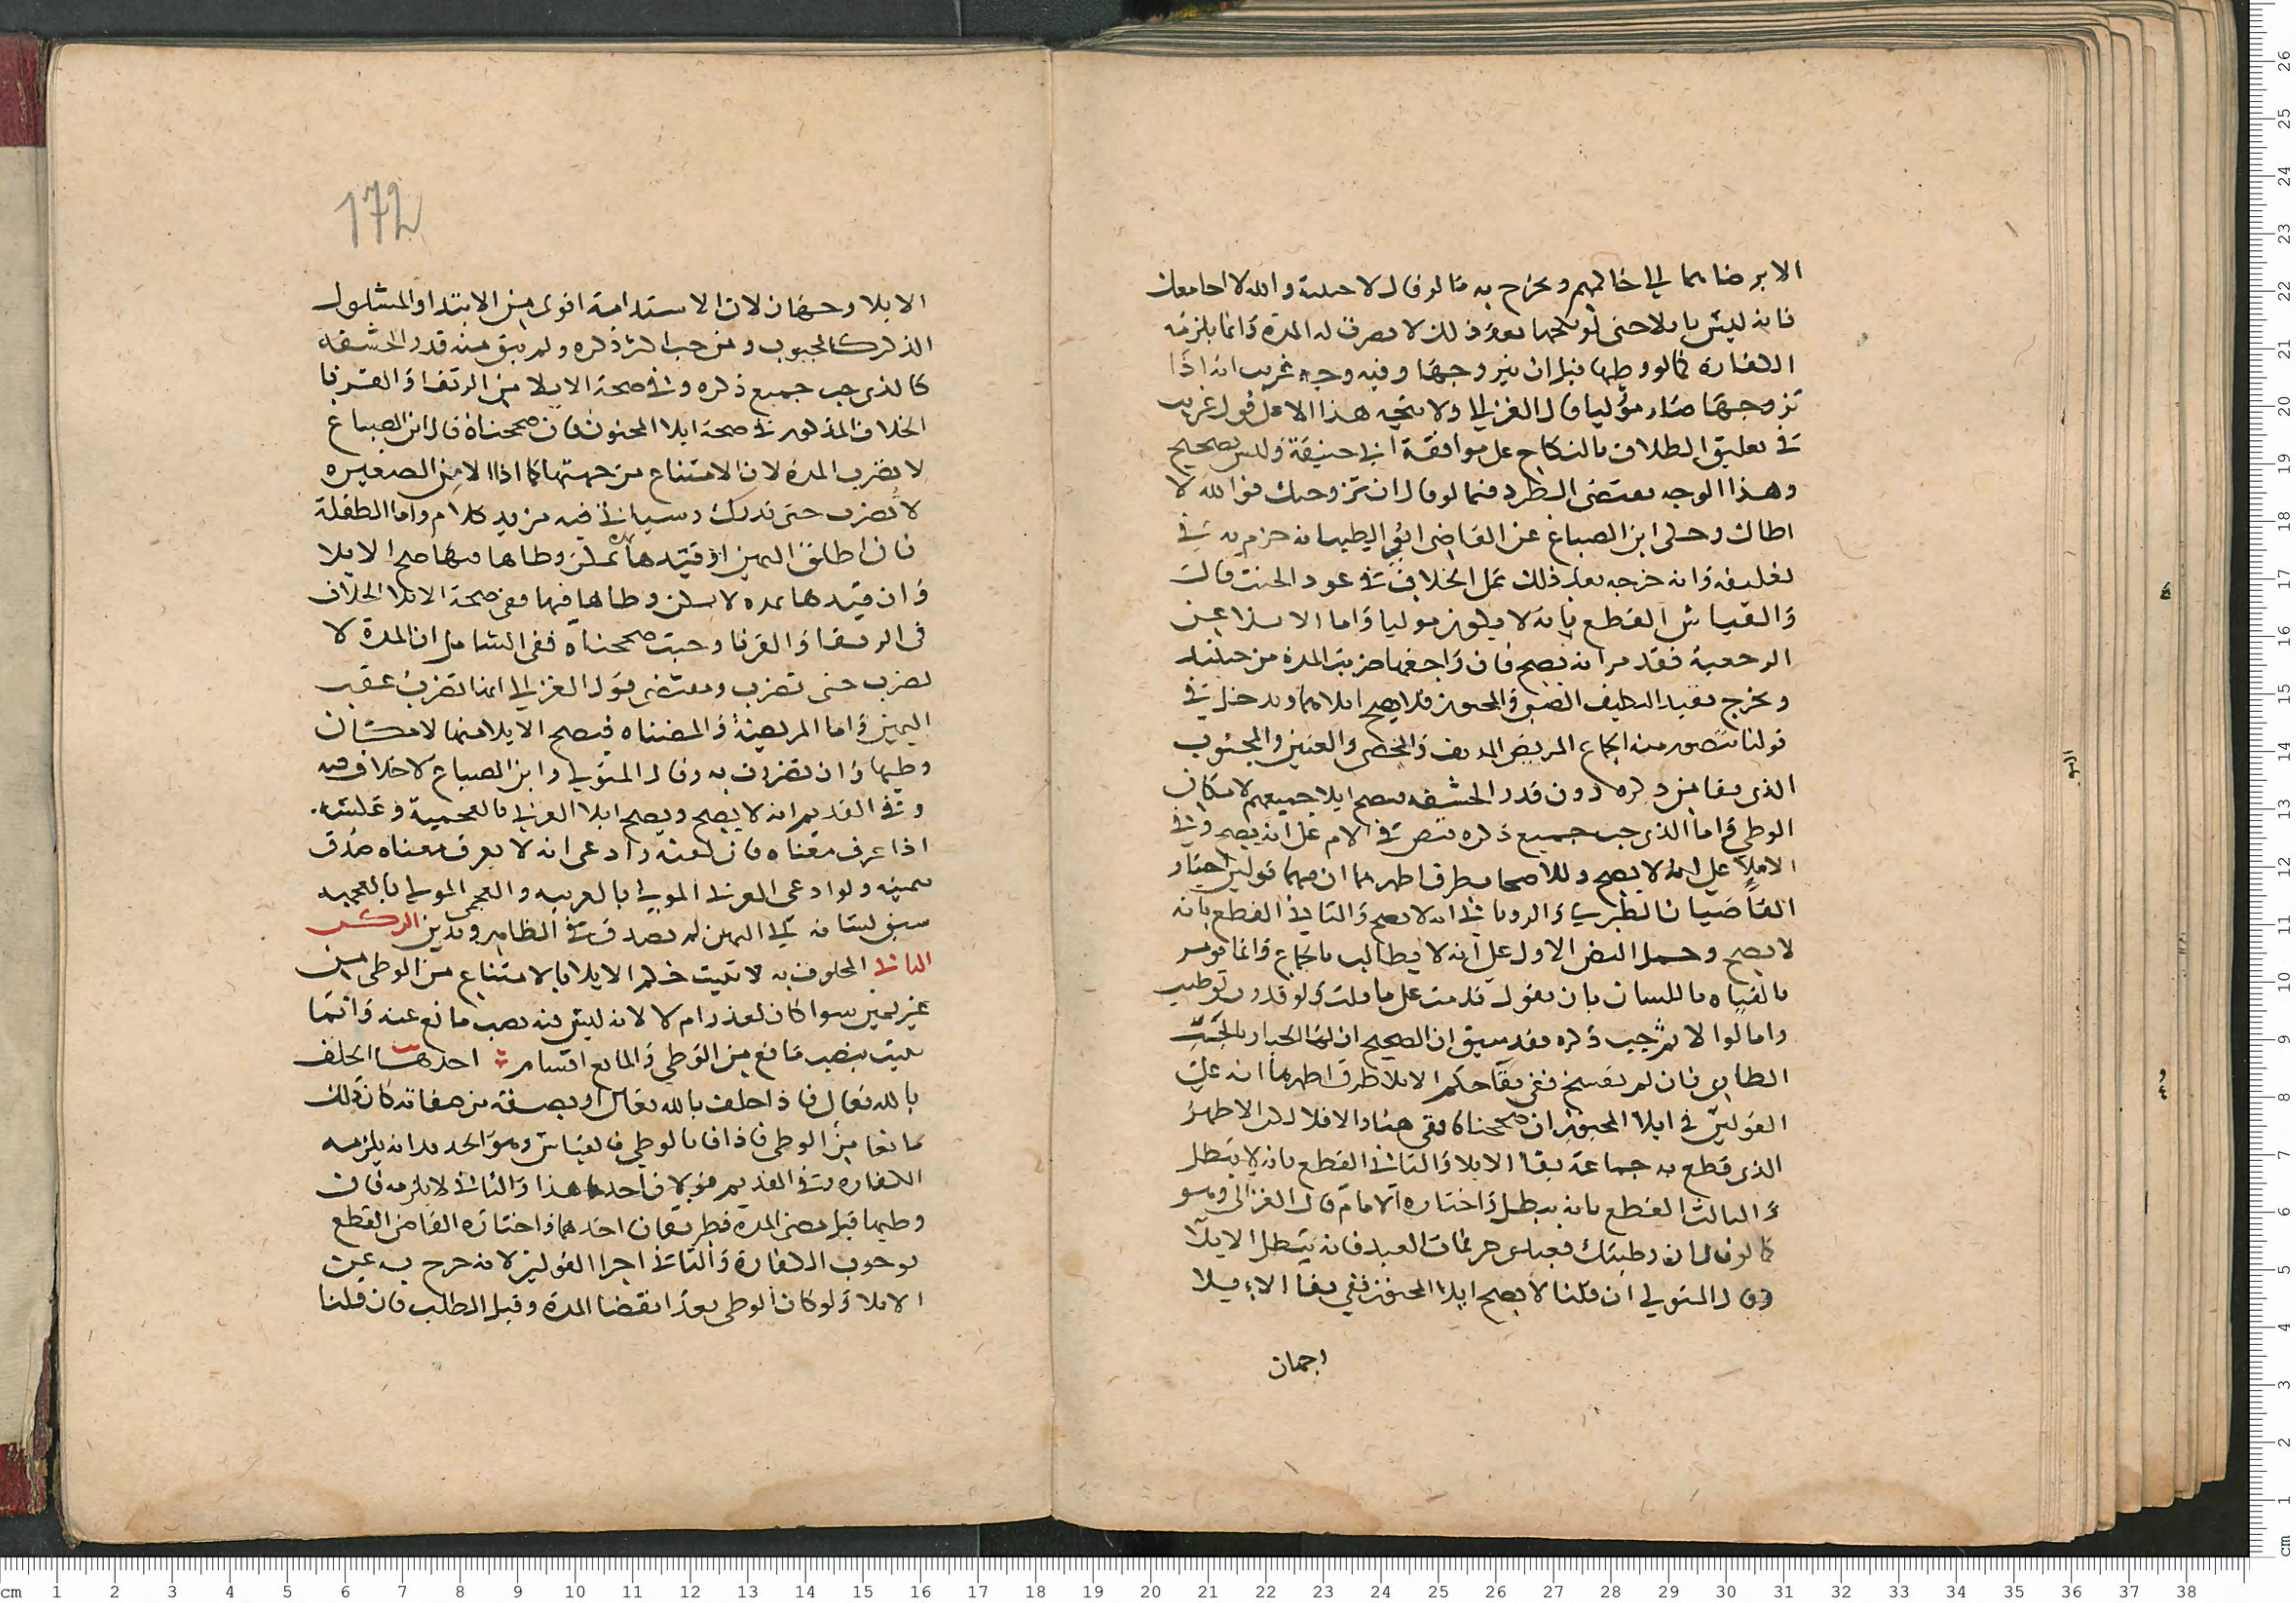 الا برضاهما في حالهم ويخرج به ما لو قال لاجنبية والله لا اجامعك
فانه ليس بايلا حتى لو نكحها بعد ذلك لا تضرب له المدة وانما يلزمه
الكفارة كما لو وطيها قبل ان يتزوجها وفيه وجه غريب انه اذا
تزوجها صار موليا قال الغزالي ولا يتجه هذا الا على قول غريب
في تعليق الطلاق بالنكاح على موافقة ابي حنيفة وليس بصحيح
وهذا الوجه مقتضى الطرد فيما لو قال ان تزوجتك فوالله لا
اطاك وحكى ابن الصباغ عن القاضي ابي الطيب انه جزم به في
تعليقه وانه خرجه بعد ذلك على الخلاف في عود الحنث قال
والقياس القطع بانه لا يكون موليا واما الايلا عن
الرجعية فقد مر انه يصح فان راجعها ضربت المدة من حينيد
ويخرج بقيد التكليف الصبي والمجنون فلا يصح ايلاهما ويدخل في
قولنا يتصور منه الجماع المريض المدنف والخصي والعنين والمجبوب
الذي بقا من ذكره دون قدر الحشفه فيصح ايلا جميعهم لامكان
الوطي واما الذي جب جميع ذكره فنص في الام على انه يصح وفي
الاملا على انه لا يصح وللاصحاب طرق اظهرها ان فيهما قولين اختار
القاضيان الطبري والروياني انه لا يصح والثاني القطع بانه
لا يصح وحمل النص الاول على انه لا يطالب بالجماع وانما يومر
بالفياه باللسان بان يقول ندمت على ما قلت ولو قدرت لوطيت
واما لو الا ثم جب ذكره فقد سبق ان الصحيح ان لها الخيار بالجب
الطاري فان لم تفسخ ففي بقا حكم الايلا طرق اظهرها انه على
القولين في ايلا المجبوب ان صححناه بقي هنا والا فلا لكن الاظهر
الذي قطع به جماعة بقا الايلا والثاني القطع بانه لا يبطل
والثالث القطع بانه يبطل واختاره الامام قال الغزالي وهو
كما لو قال ان وطيتك فعبدي حر فمات العبد فانه يبطل الايلا
وقال المتولي ان قلنا لا يصح ايلا المجبوب ففي بقا الايلا
وجهان
172
الايلا وجهان لان الاستدامة اقوى من الابتدا والمشلول
الذكر كالمجبوب ومن جب اكثر ذكره ولم يبق منه قدر الحشفه
كالذي جب جميع ذكره وفي صحة الايلا من الرتقا والقرنا
الخلاف المذكور في صحة ايلا المجبوب فان صححناه قال ابن الصباغ
لا تضرب المدة لان الامتناع من جهتها كما اذا الا من الصغيره
لا تضرب حتى تدرك وسياتي فيه مزيد كلام واما الطفلة
فان اطلق اليمين او قيدها بمدة يمكن وطاها فيها صح الايلا
وان قيدها بمده لا يمكن وطاها فيها ففي صحة الايلا الخلاف
في الرتقا والقرنا وحيث صححناه ففي الشامل ان المدة لا
تضرب حتى تضرب ومقتضى قول الغزالي انها تضرب عقب
اليمين واما المريضة والمضناه فيصح الايلا منهما لامكان
وطيها وان تضررت به وقال المتولي وابن الصباغ لا خلاف فيه
وفي القديم انه لا يصح ويصح ايلا العربي بالعجمية وعكسه
اذا عرف معناه فان لقنه وادعى انه لا يعرف معناه صدق
بيمينه ولو ادعى العربي المولي بالعربيه والعجمي المولي بالعجميه
سبق لسانه الى اليمين لم يصدق في الظاهر ويدين الركن
الثاني المحلوف به لا يثبت حكم الايلا بالامتناع من الوطي من
غير يمين سوا كان لعذر ام لا لانه ليس فيه نصب مانع عنه وانما
يثبت بنصب مانع من الوطي والمانع اقسام احدها الحلف
بالله تعالى فاذا حلف بالله تعالى او بصفة من صفاته كان ذلك
مانعا من الوطي فاذا فا بالوطي فالقياس وهو الجديد انه يلزمه
الكفاره وفي القديم قولان احدهما هذا والثاني لا يلزمه فان
وطيها قبل مضي المدة فطريقان احدهما واختاره القاضي القطع
بوجوب الكفارة والثاني اجرا القولين لانه خرج به عن
الايلا ولو كان الوطي بعد انقضا المدة وقبل الطلب فان قلنا